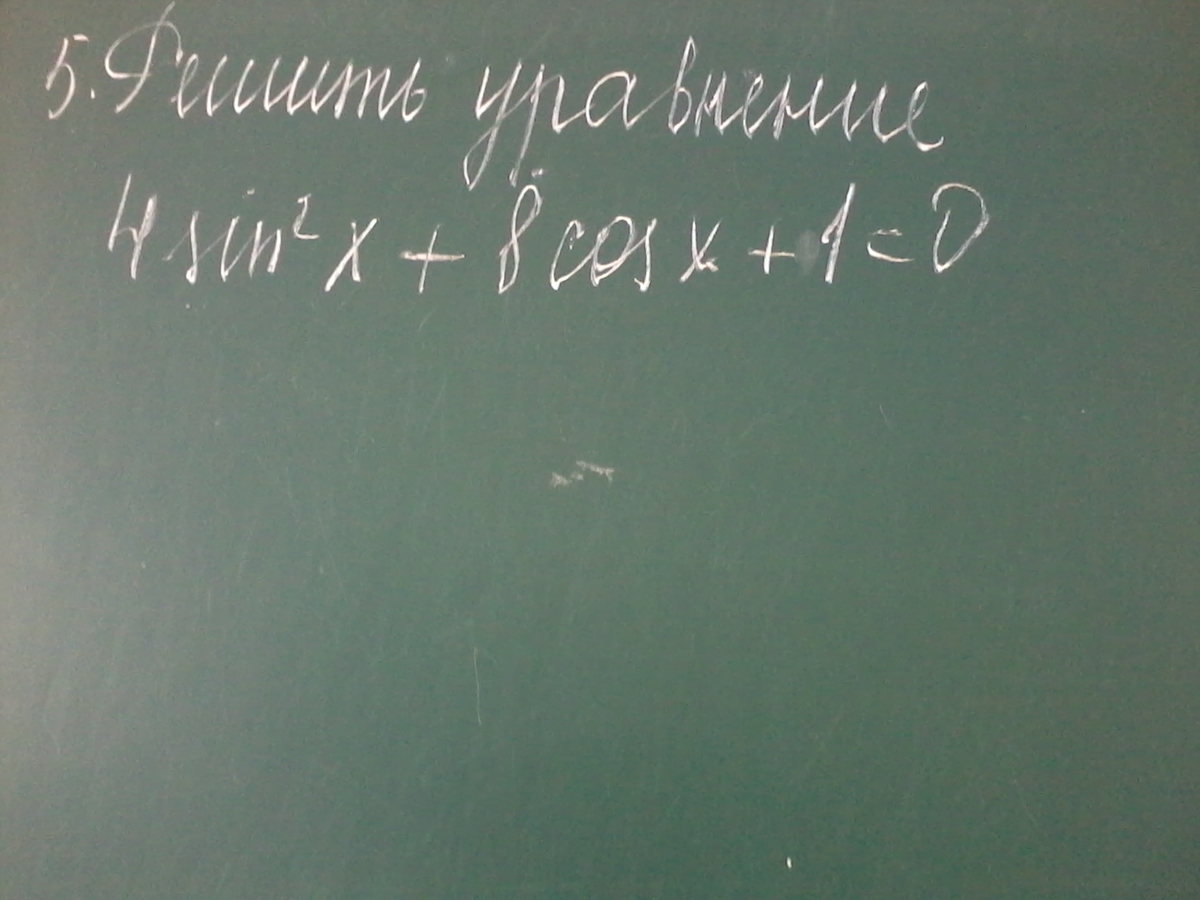 5. Решить уравнение
4 sin² x + 8 cos x + 1 = 0